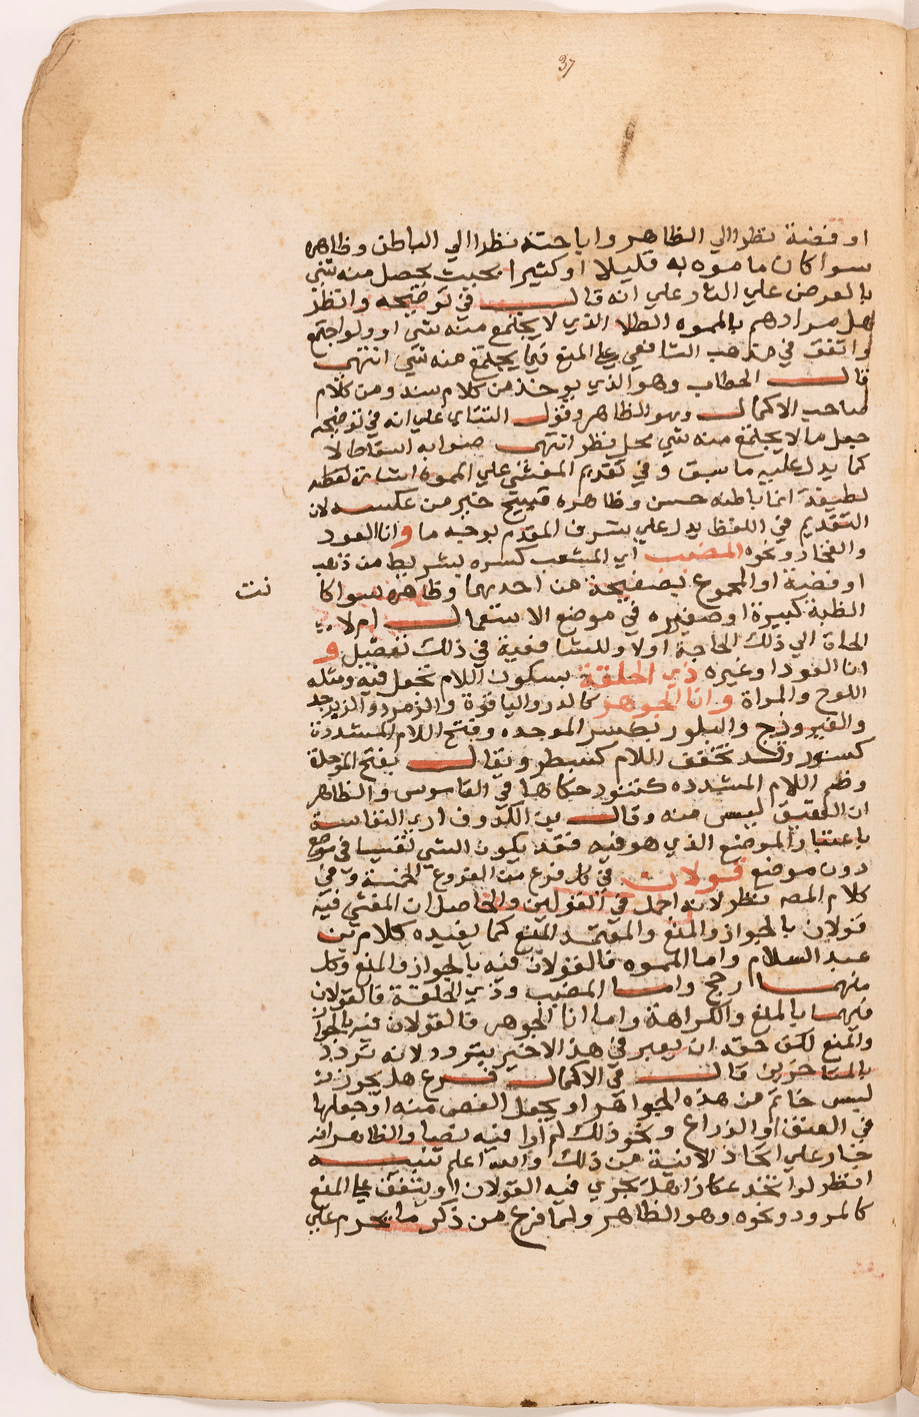 37
او فضة نظرا الي الظاهر واباحته نظرا الي الباطن وظاهره
سوا كان ما موه به قليلا او كثيرا بحيث يحصل منه شي
بالعرض علي النار علي انه قال في توضيحه وانظر
هل مرادهم بالمموه الطلا الذي لا يجتمع منه شي او ولو اجتمع
واتفق في مذهب الشافعي علي المنع فيما يجتمع منه شي انتهي
قال الحطاب وهو الذي يوخذ من كلام سند ومن كلام
صاحب الاكمال وهو الظاهر وقول التتاي علي انه في توضيحه
جعل ما لا يجتمع منه شي محل نظر انتهي صوابه اسقاط لا
كما يدل عليه ما سبق وفي تقديم المغشي علي المموه اشارة لطيفة
لطيفة انما باطنه حسن وظاهره قبيح خير من عكسه لان
التقديم في اللفظ يدل علي شرف المقدم بوجه ما وانا العود
والفخار ونحوه المضبب اي المشعب كسره بشريط من ذهب
او فضة او المجموع بصفيحة من احدهما وظاهره سوا كا
نت
الظبة كبيرة او صغيره في موضع الاستعمال ام لا
الحاة الي ذلك الحاجة اولا وللشافعية في ذلك تفصيل و
انا العود او غيره ذي الحلقة بسكون اللام تجعل فيه ومثله
اللوح والمراة وانا الجوهر كالدر والياقوة والزمرد والزبرجد
والفيروزج والبلور بكسر الموحده وفتح اللام المشددة
كسنور وقد تخفف اللام كسبطر ويقال بفتح الموحدة
وضم اللام المشدده كتنور حكاها في القاموس والظاهر
ان العقيق ليس منه وقال بن الكدوف اري النفاسة
باعتبار الموضع الذي هو فيه فقد يكون الشي نفيسا في موضع
دون موضع قولان في كل فرع من الفروع الخمسة وفي
كلام المصه نظر لانه اجمل في القولين والحاصل ان المغشي فيه
قولان بالجواز والمنع والمعتمد المنع كما يفيده كلام بن
عبد السلام واما المموه فالقولان فيه بالجواز والمنع وكل
منهما ارجح واما المضبب وذي الحلقة فالقولان
فيهما بالمنع والكراهة واما انا الجوهر فالقولان فيه بالجواز
والمنع لكن حقه ان يعبر في هذا الاخير بتردد لانه تردد
بالمتاخرين قال في الاكمال فرع هل يجوز له
لبس خاتم من هذه الجواهر او يجعل الفص منه او جعلها
في العنق او الذراع ونحو ذلك لم ارا فيه نصا والظاهر انه
جار علي اتخاذ الانية من ذلك والله اعلم تنبيه
انظر لو اتخذ عكازا هل يجري فيه القولان او يتفق علي المنع
كالمرود ونحوه وهو الظاهر ولما فرغ من ذكر ما يحرم علي